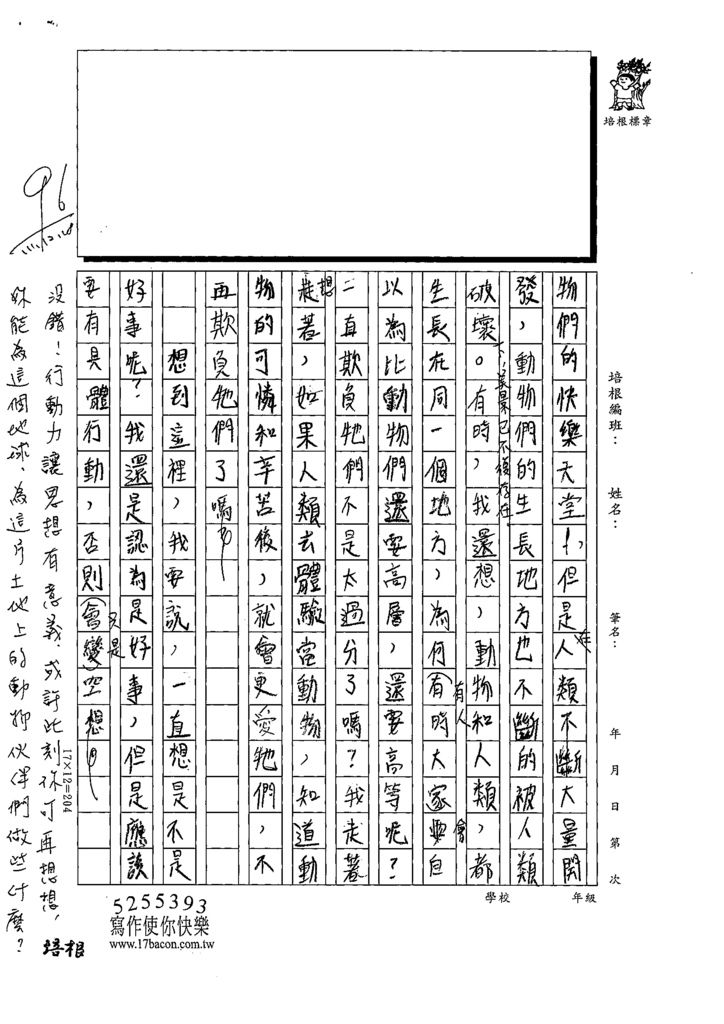 培根標章
培根編班：　姓名：　筆名：　年　月　日　第　次
學校　年級
物們的快樂天堂！，但是人類不斷大量開
在
發，動物們的生長地方也不斷的被人類
破壞。有時，我還想，動物和人類，都
美景已不復存在。
生長在同一個地方，為何有時大家要自
有人
會
以為比動物們還要高層，還要高等呢？
一直欺負牠們不是太過分了嗎？我走著
走著，如果人類去體驗當動物，知道動
想
物的可憐和辛苦後，就會更愛牠們，不
再欺負牠們了嗎？
想到這裡，我要說，一直想是不是
好事呢？我還是認為是好事，但是應該
要有具體行動，否則會變空想。
只是
96
111.12.28
沒錯！行動力讓思想有意義．或許此刻你可再想想，
妳能為這個地球、為這片土地上的動物伙伴們做些什麼？
17×12=204
培根
5255393
寫作使你快樂
www.17bacon.com.tw